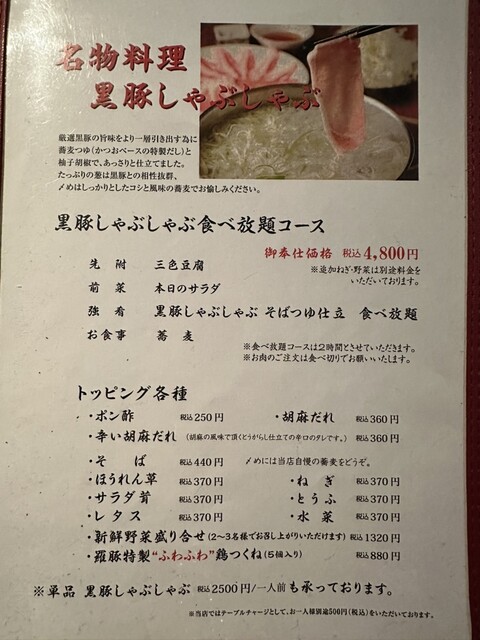 名物料理
黒豚しゃぶしゃぶ
厳選黒豚の旨味をより一層引き出す為に
蕎麦つゆ(かつおベースの特製だし)と
柚子胡椒で、あっさりと仕立てました。
たっぷりの葱は黒豚との相性抜群、
〆めはしっかりとしたコシと風味の蕎麦でお愉しみください。
黒豚しゃぶしゃぶ食べ放題コース
御奉仕価格 税込4,800円
※追加ねぎ・野菜は別途料金を
いただいております。
先附 三色豆腐
前菜 本日のサラダ
強肴 黒豚しゃぶしゃぶ そばつゆ仕立 食べ放題
お食事 蕎麦
※食べ放題コースは2時間とさせていただきます。
※お肉のご注文は食べ切りでお願いいたします。
トッピング各種
・ポン酢 税込250円 ・胡麻だれ 税込360円
・辛い胡麻だれ (胡麻の風味で頂くとうがらし仕立ての辛口のタレです。) 税込360円
・そば 税込440円 〆めには当店自慢の蕎麦をどうぞ。
・ほうれん草 税込370円 ・ねぎ 税込370円
・サラダ茸 税込370円 ・とうふ 税込370円
・レタス 税込370円 ・水菜 税込370円
・新鮮野菜盛り合せ(2〜3名様でお召し上がりいただけます) 税込1320円
・羅豚特製“ふわふわ”鶏つくね(5個入り) 税込880円
※単品 黒豚しゃぶしゃぶ 税込2500円/一人前 も承っております。
※当店ではテーブルチャージとして、お一人様別途500円(税込)をいただいております。